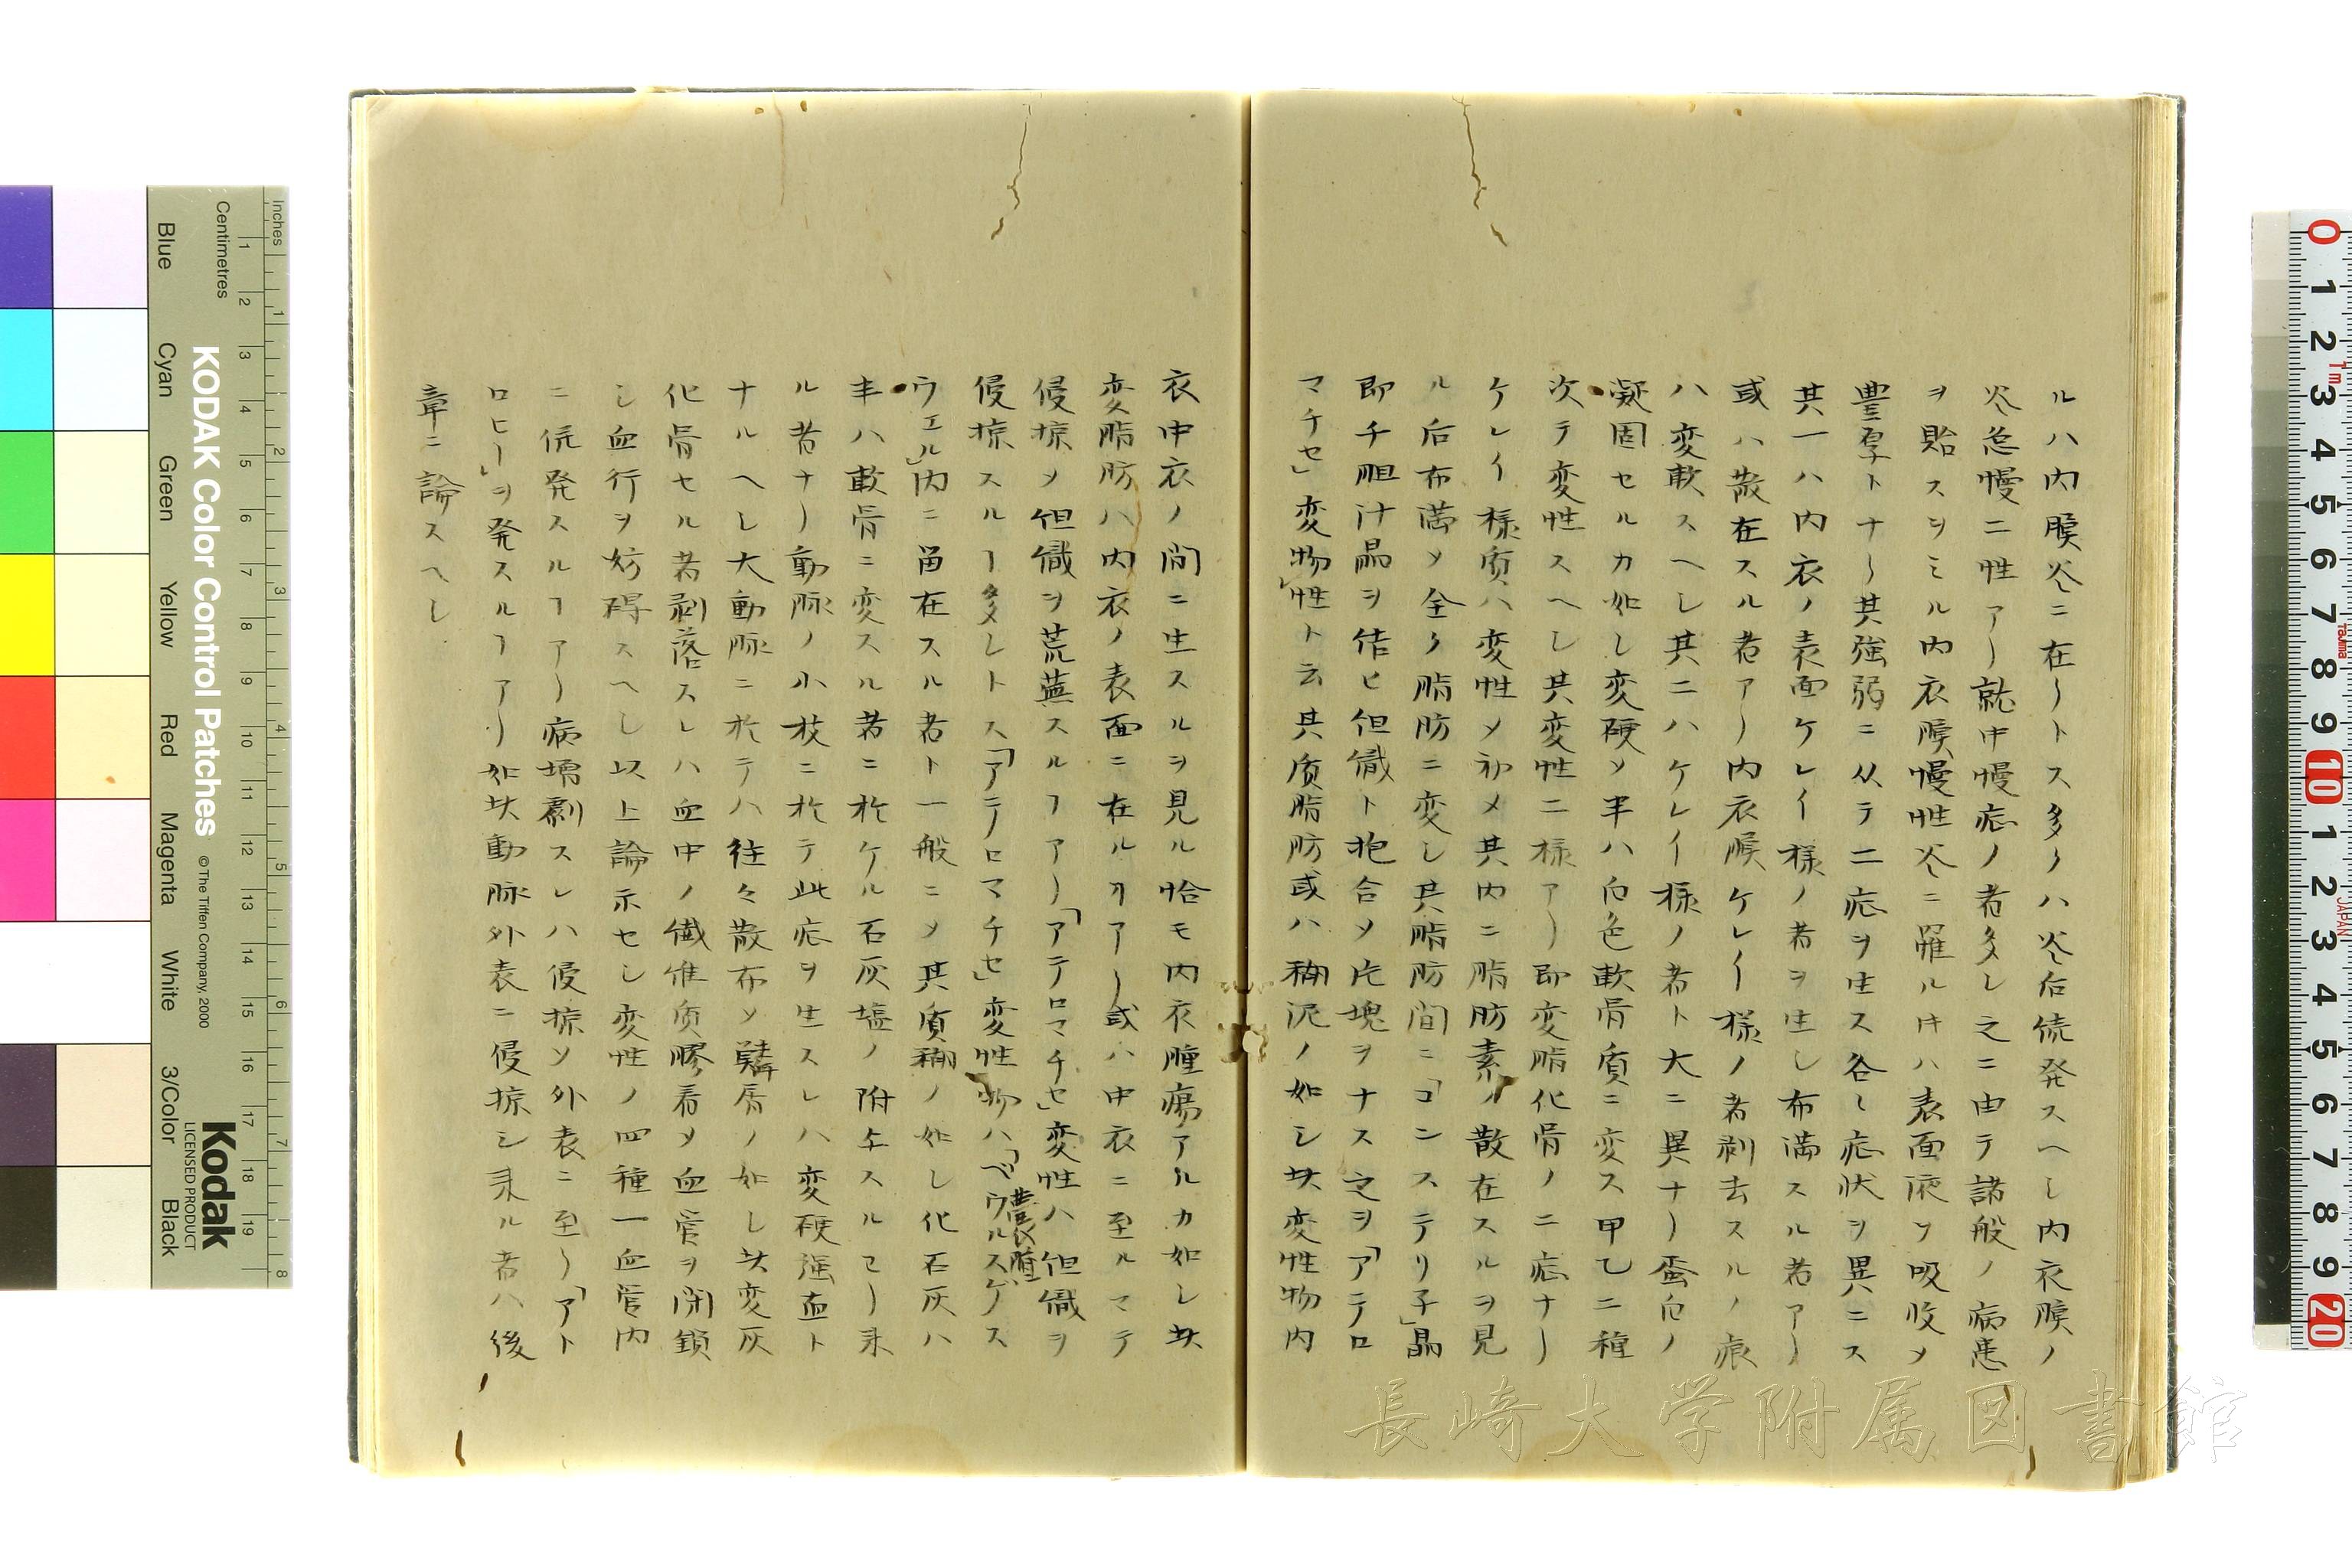 ルハ内膜炎ニ在リトス多クハ炎后続発スヘシ内衣膜ノ
炎急慢二性アリ就中慢症ノ者多シ之ニ由テ諸般ノ病患
ヲ貽スヲミル内衣膜慢性炎ニ罹ルキハ表面液ヲ吸收メ
豊厚トナリ其強弱ニ从テ二症ヲ生ス各〻症状ヲ異ニス
其一ハ内衣ノ表面ケレイ様ノ者ヲ生シ布満スル者アリ
或ハ散在スル者アリ内衣膜ケレイ様ノ者剥去スルノ痕
ハ変軟スヘシ其二ハケレイ様ノ者ト大ニ異ナリ蛋白ノ
凝固セルカ如シ変硬ソ半ハ白色軟骨質ニ変ス甲乙二種
次テ変性スヘシ其変性二様アリ即変脂化骨ノ二症ナリ
ケレイ様质ハ変性メ初メ其内ニ脂肪素ノ散在スルヲ見
ル后布満メ全ク脂肪ニ変シ其脂肪間ニ「コンステリ子」晶
即チ胆汁晶ヲ結ヒ但織ト抱合メ片塊ヲナス之ヲ「アテロ
マチセ」変物」性ト云其质脂肪或ハ糊泥ノ如シ其変性物内
衣中衣ノ間ニ生スルヲ見ル恰モ内衣腫瘍アルカ如シ其
変脂肪ハ内衣ノ表面ニ在ルヿアリ或ハ中衣ニ至ルマテ
侵掠メ但織ヲ荒蕪スルヿアリ「アテロマチセ」変性ハ但織ヲ
侵掠スルヿ多シトス「アテロマチセ」変性物ハ「ベウルスゲス
農膸
ウエル」内ニ畄在スル者ト一般ニメ其质糊ノ如シ化石灰ハ
半ハ軟骨ニ変スル者ニ於ケル石灰塩ノ附与スルヨリ来
ル者ナリ動脈ノ小枝ニ於テ此症ヲ生スレハ変硬强直ト
ナルヘシ大動脈ニ於テハ往々散布ソ鱗屑ノ如シ其変灰
化骨セル者剥落スレハ血中ノ繊維质膠着メ血管ヲ閉鎖
シ血行ヲ妨碍スヘシ以上論示セシ変性ノ四種一血管内
ニ続発スルヿアリ病増劇スレハ侵掠ソ外表ニ至リ「アト
ロヒー」ヲ発スルヿアリ如其動脈外表ニ侵掠シ来ル者ハ後
章ニ論スヘシ
Inches
Centimetres
KODAK Color Control Patches
© The Tiffen Company, 2000
Kodak
LICENSED PRODUCT
Blue Cyan Green Yellow Red Magenta White 3/Color Black
長崎大学附属図書館